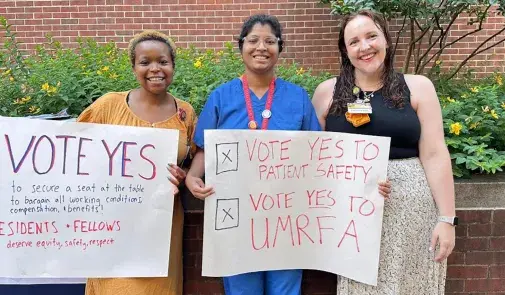 VOTE YES
to secure a seat at the table
to bargain all working conditions,
compensation, & benefits!
ESIDENTS + FELLOWS
deserve equity, safety, respect
VOTE YES TO
PATIENT SAFETY
VOTE YES TO
UMRFA